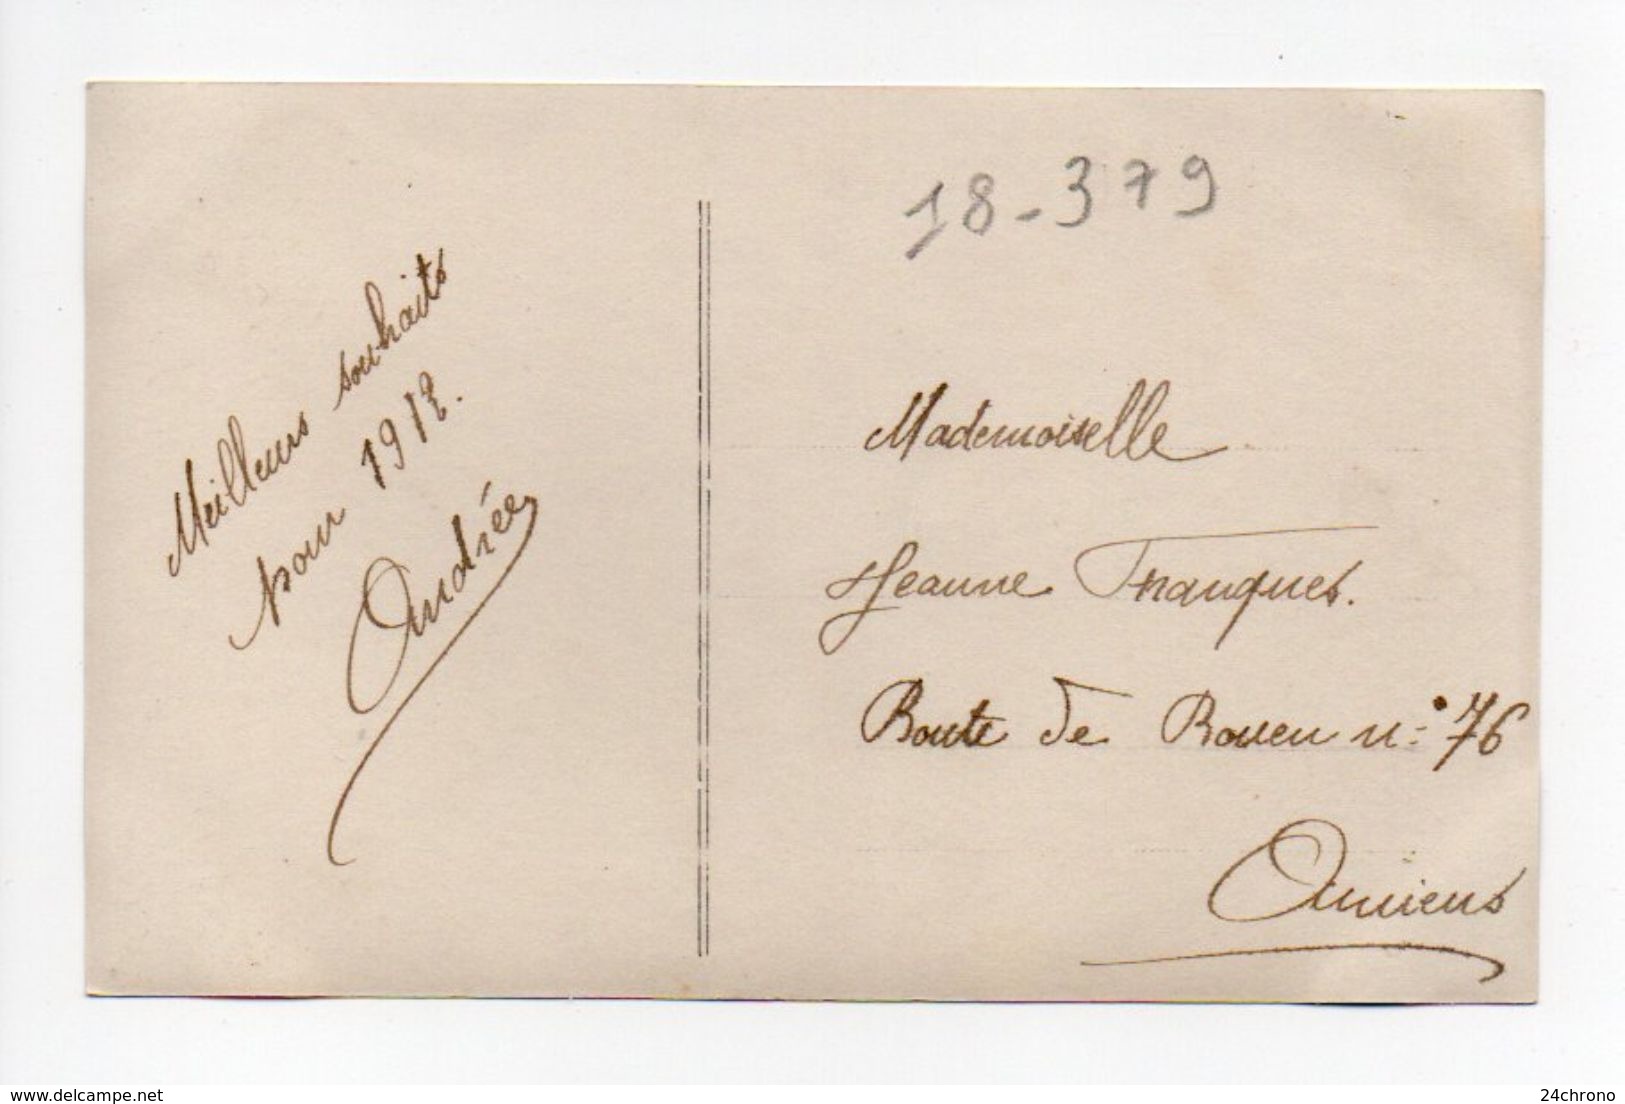 18-379
Meilleurs souhaits
pour 1912.
Andrée
Mademoiselle
Jeanne Franques.
Route de Rouen n° 76
Amiens
delcampe.net
24chrono